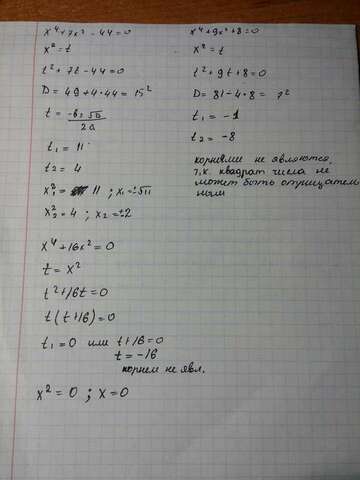 x⁴+7x²-44=0
x²=t
t²+7t-44=0
D=49+4·44=15²
t=(-b±√D)/2a
t₁=11
t₂=4
x₁²=11; x₁=±√11
x₂²=4; x₂=±2
x⁴+16x²=0
t=x²
t²+16t=0
t(t+16)=0
t₁=0 или t+16=0
t=-16
корнем не явл.
x²=0; x=0
x⁴+9x²+8=0
x²=t
t²+9t+8=0
D=81-4·8=7²
t₁=-1
t₂=-8
корнями не являются,
т.к. квадрат числа не
может быть отрицатель
ным